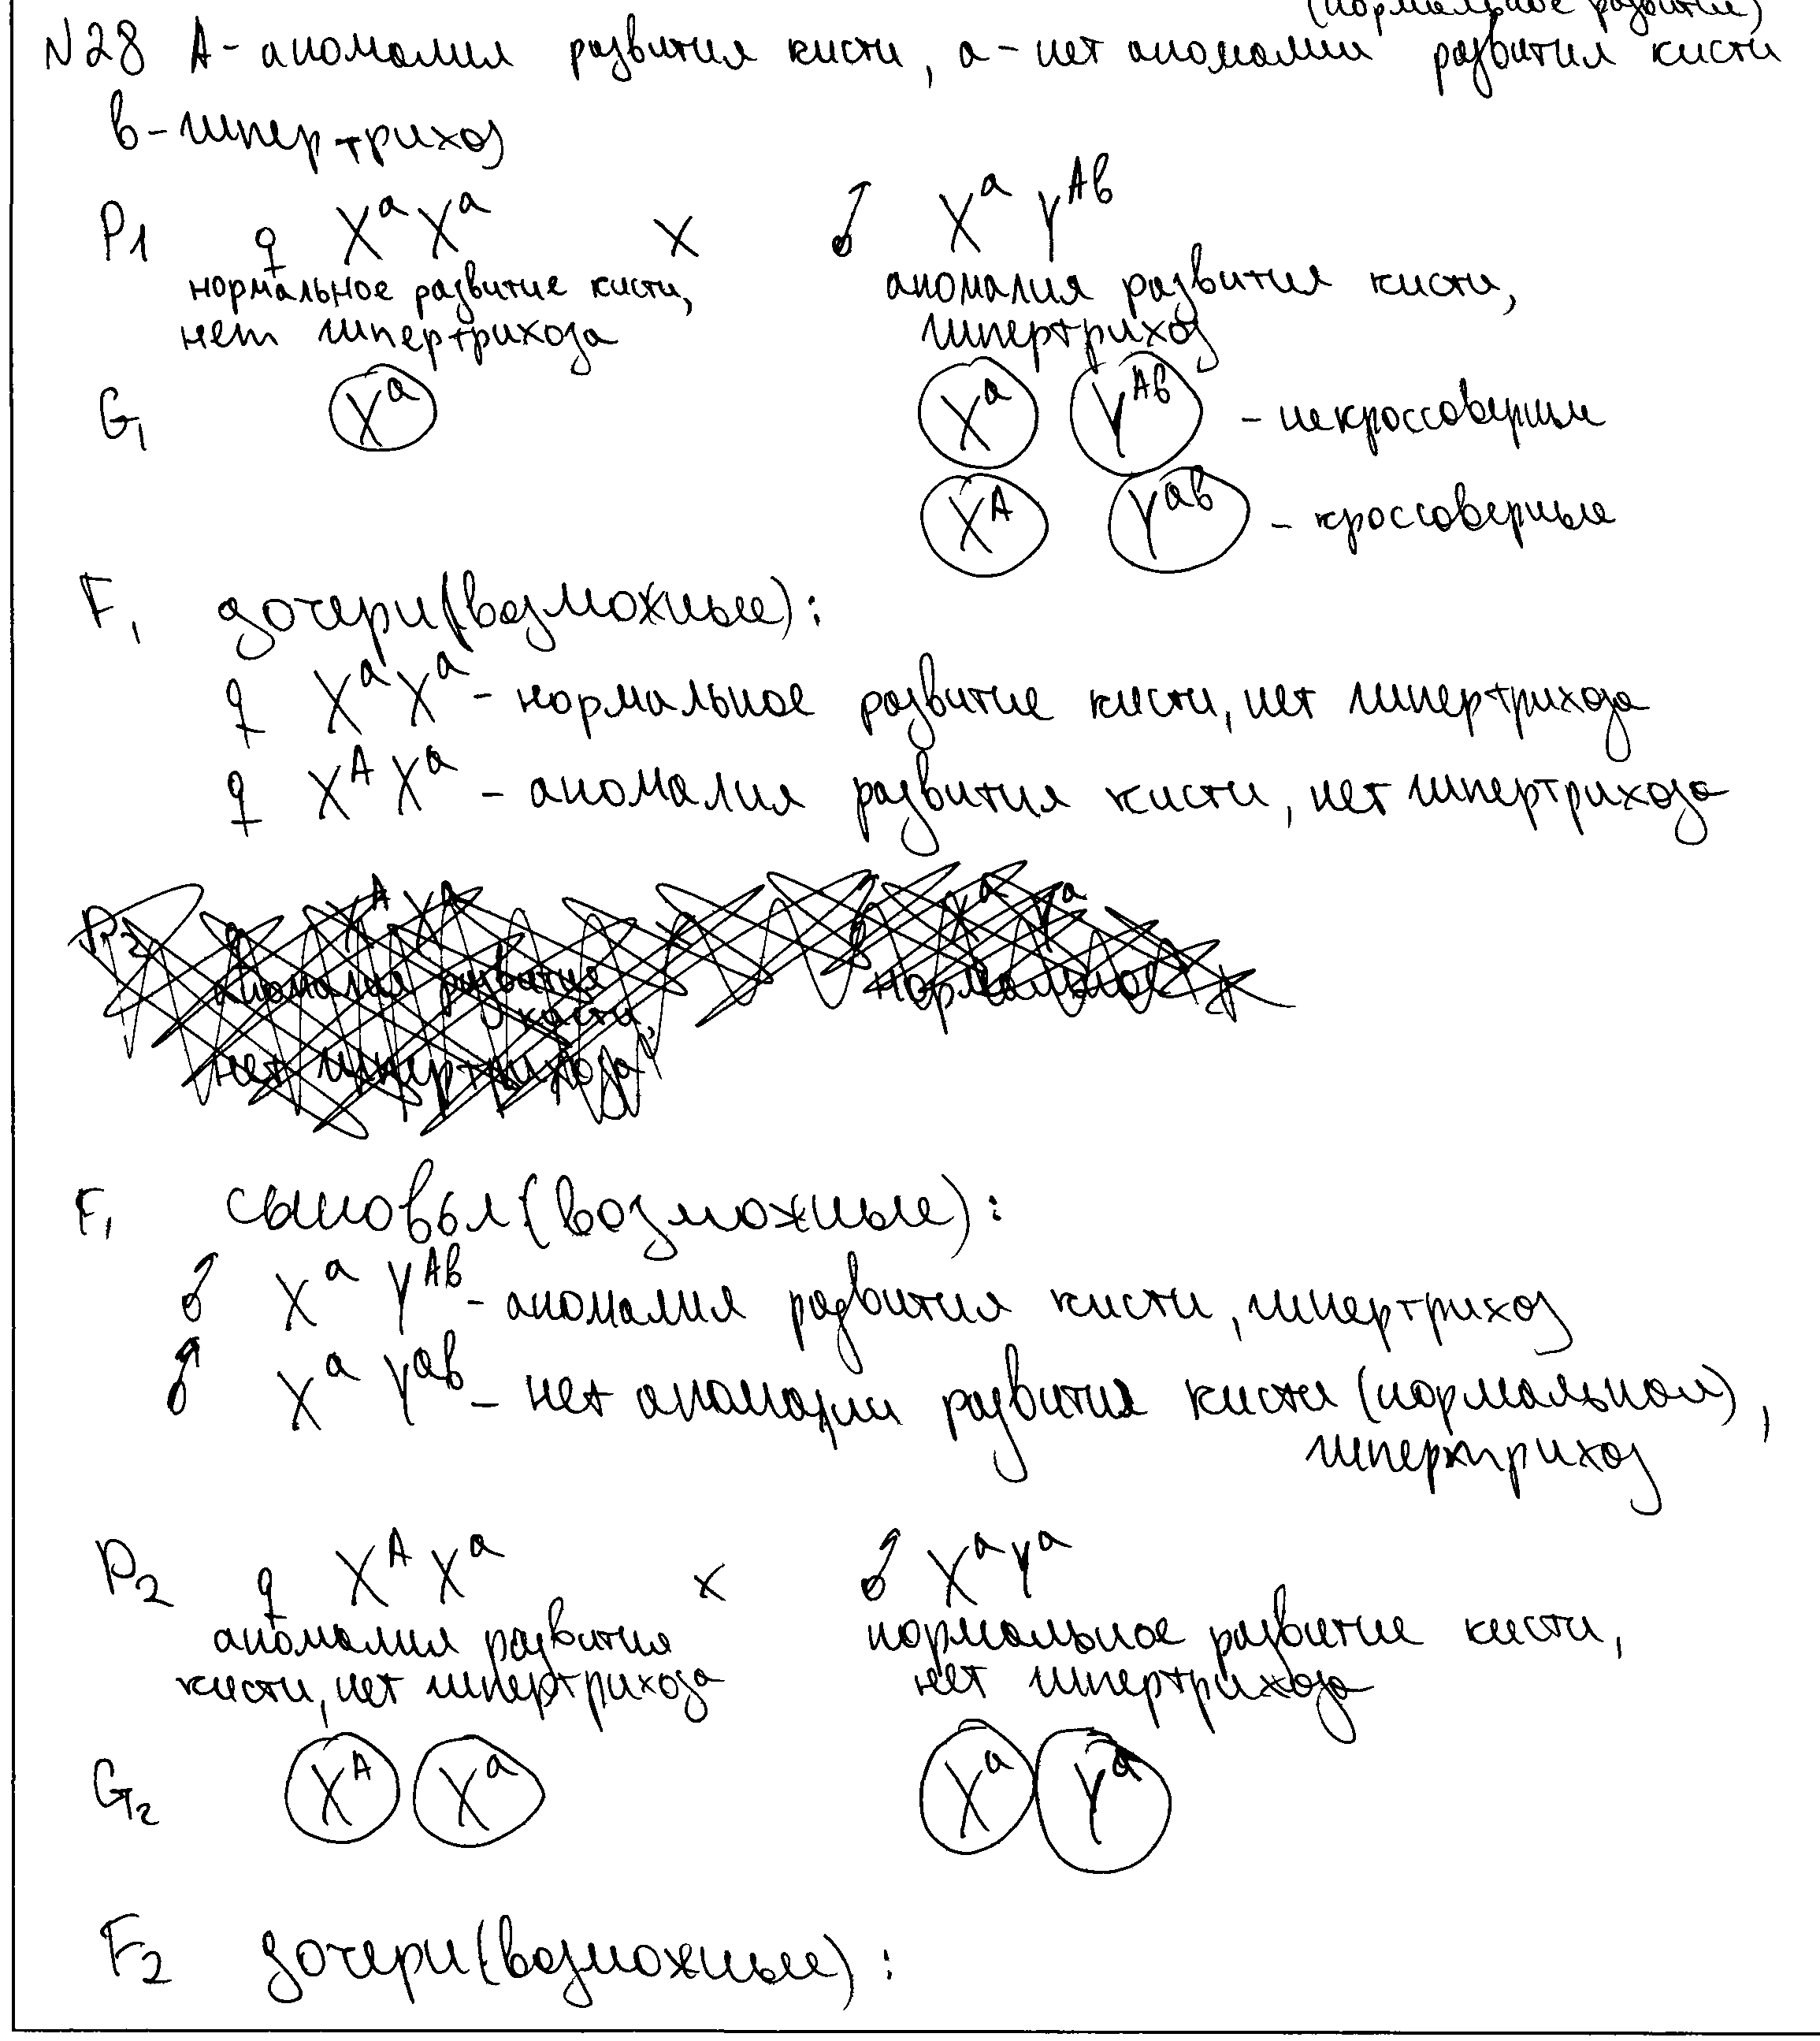 (нормальное развитие)
N28 А - аномалия развития кисти, а - нет аномалии развития кисти
в - гипертрихоз
P1 ♀ XᵃXᵃ x ♂ XᵃYᴬᵇ
нормальное развитие кисти, аномалия развития кисти,
нет гипертрихоза гипертрихоз
G₁ Xᵃ Xᵃ Yᴬᵇ - некроссоверные
Xᴬ Yᵃᵇ - кроссоверные
F₁ дочери (возможные):
♀ XᵃXᵃ - нормальное развитие кисти, нет гипертрихоза
♀ XᴬXᵃ - аномалия развития кисти, нет гипертрихоза
F₁ сыновья (возможные):
♂ XᵃYᴬᵇ - аномалия развития кисти, гипертрихоз
♂ XᵃYᵃᵇ - нет аномалии развития кисти (нормальной),
гипертрихоз
P₂ ♀ XᴬXᵃ x ♂ XᵃYᵃ
аномалия развития нормальное развитие кисти,
кисти, нет гипертрихоза нет гипертрихоза
G₂ Xᴬ Xᵃ Xᵃ Yᵃ
F₂ дочери (возможные):